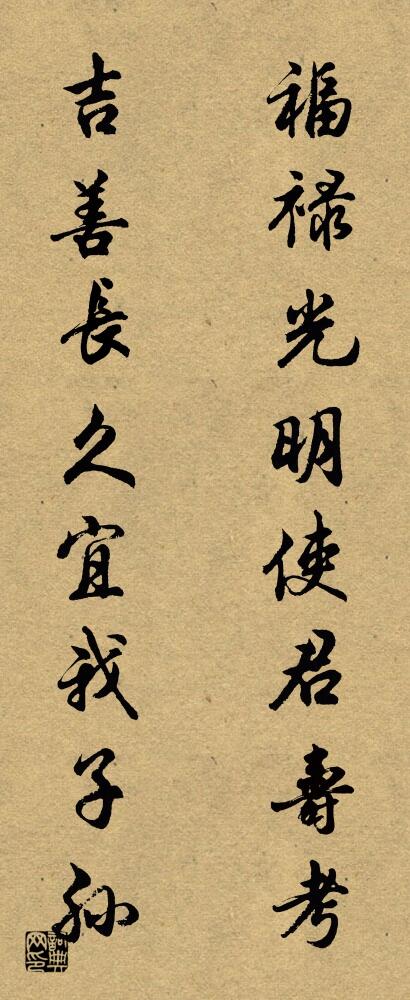 福禄光明使君壽考
吉善長久宜我子孫